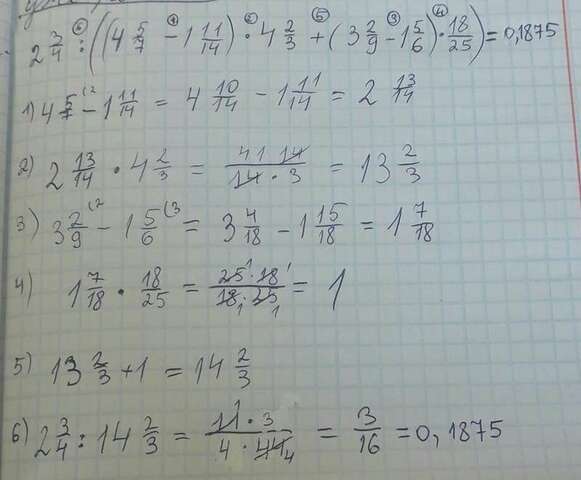 2 3/4 : ((4 5/7 - 1 11/14) · 4 2/3 + (3 2/9 - 1 5/6) · 18/25) = 0,1875
1) 4 5/7 (2 - 1 11/14 = 4 10/14 - 1 11/14 = 2 13/14
2) 2 13/14 · 4 2/3 = 41 14/14 · 3 = 13 2/3
3) 3 2/9 (2 - 1 5/6 (3 = 3 4/18 - 1 15/18 = 1 7/18
4) 1 7/18 · 18/25 = 25 · 18/18 · 25 = 1
5) 13 2/3 + 1 = 14 2/3
6) 2 3/4 : 14 2/3 = 11 · 3/4 · 44 4 = 3/16 = 0,1875